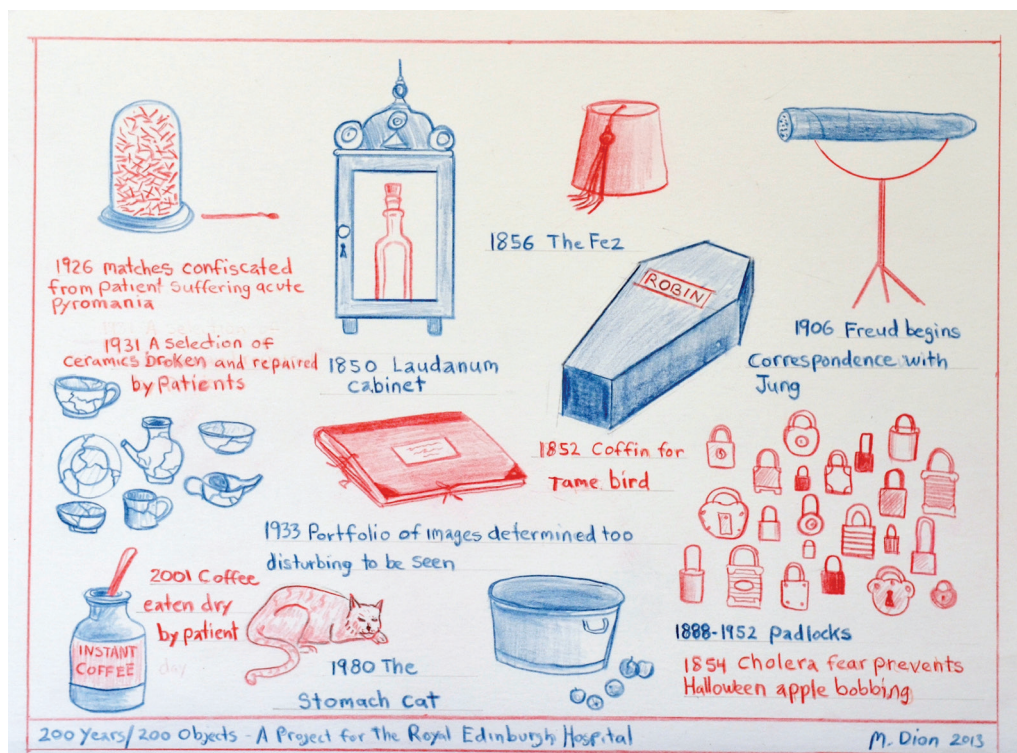 1926 matches confiscated
from patient suffering acute
Pyromania
1931 A selection of
ceramics broken and repaired
by Patients
1850 Laudanum
cabinet
1856 The Fez
ROBIN
1906 Freud begins
Correspondence with
Jung
1852 Coffin for
Tame bird
1933 Portfolio of images determined too
disturbing to be seen
2001 Coffee
eaten dry
by patient
INSTANT
COFFEE
1980 The
Stomach Cat
1888-1952 Padlocks
1854 Cholera fear prevents
Halloween apple bobbing
200 Years/200 Objects - A Project for The Royal Edinburgh Hospital
M. Dion 2013